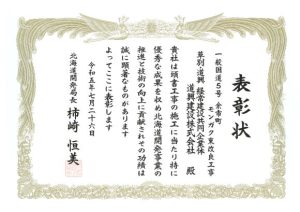 表彰状
一般国道5号 余市町
モンガク東改良工事
草別・道興 経常建設共同企業体
道興建設株式会社 殿
貴社は頭書工事の施工に当たり特に
優秀な成果を収め北海道開発事業の
推進と技術の向上に貢献されその功績は
誠に顕著なものがあります
よってここに表彰します
令和五年七月二十六日
北海道開発局長 柿崎恒美